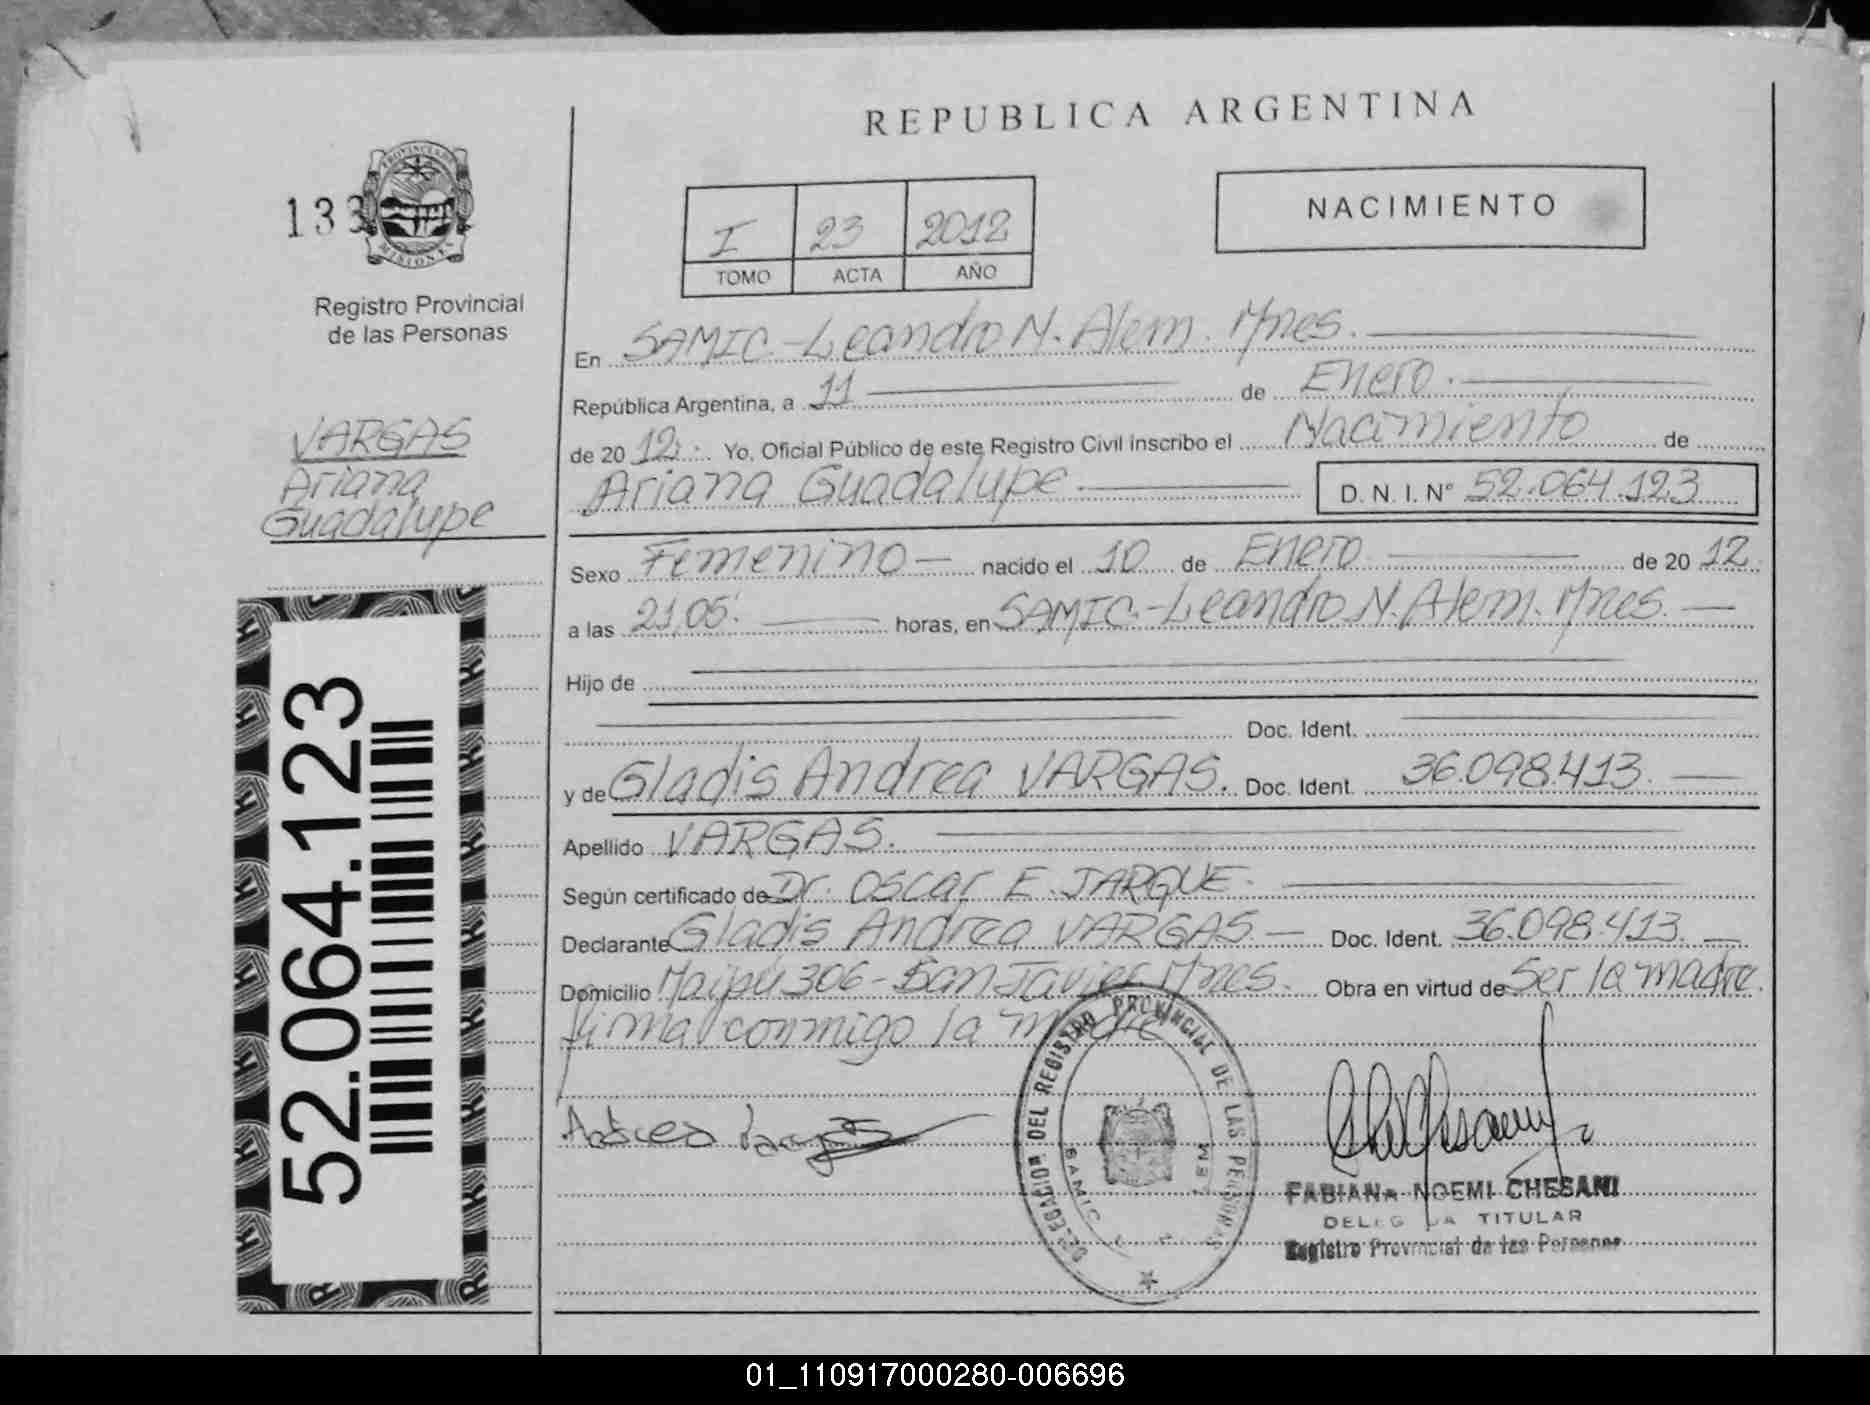 REPUBLICA ARGENTINA
133
PROVINCIA DE
MISIONES
Registro Provincial
de las Personas
I 23 2012
TOMO ACTA AÑO
NACIMIENTO
En SAMIC - Leandro N. Alem. Mnes.
República Argentina, a 11 de Enero.
de 2012. Yo, Oficial Público de este Registro Civil inscribo el Nacimiento de
Ariana Guadalupe D. N. I. Nº 52.064.123
VARGAS
Ariana
Guadalupe
Sexo Femenino nacido el 10 de Enero de 2012.
a las 21,05. horas, en SAMIC - Leandro N. Alem. Mnes.
Hijo de
Doc. Ident.
y de Gladis Andrea VARGAS. Doc. Ident. 36.098.413.
Apellido VARGAS.
Según certificado de Dr. Oscar E. JARQUE.
Declarante Gladis Andrea VARGAS Doc. Ident. 36.098.413.
Domicilio Maipú 306 - San Javier Mnes. Obra en virtud de Ser la madre.
firma conmigo la madre
52.064.123
DELEGACION DEL REGISTRO PROVINCIAL DE LAS PERSONAS
SAMIC
ALEM
FABIANA NOEMI CHESANI
DELEGADA TITULAR
Registro Provincial de las Personas
01_110917000280-006696